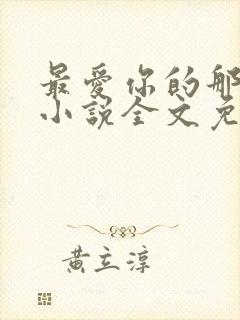 最愛你的那
小說全文免
黃立淳